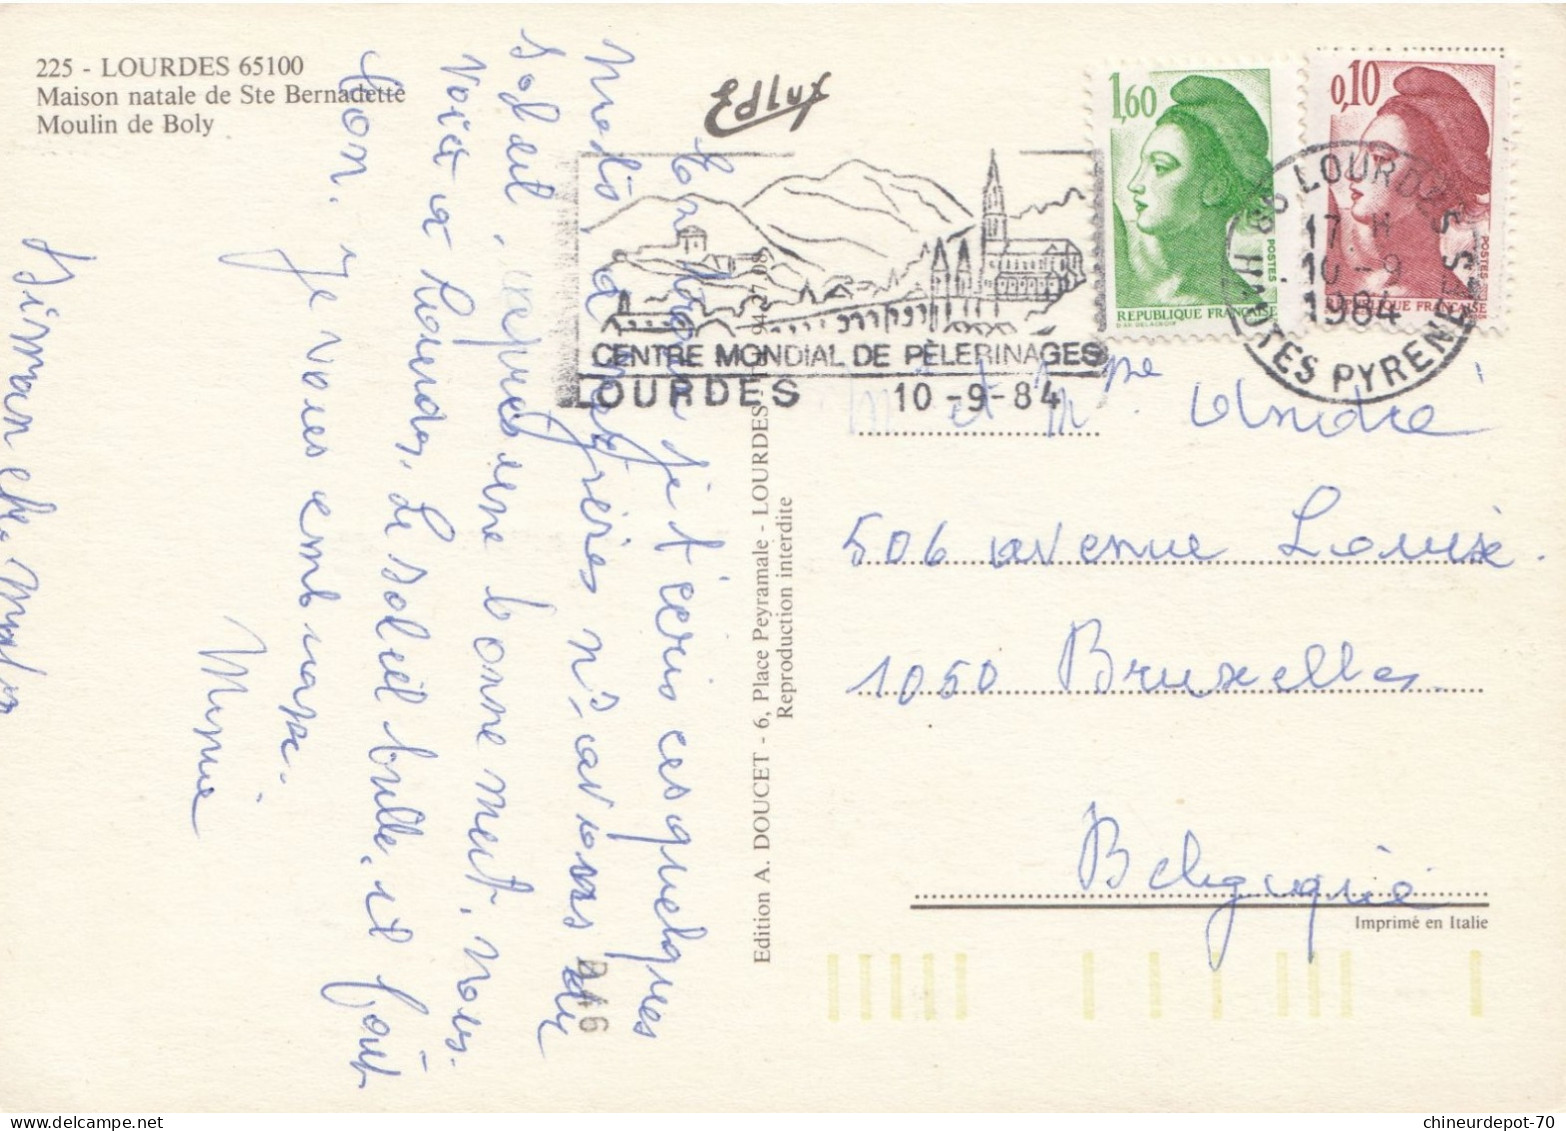 225 - LOURDES 65100
Maison natale de Ste Bernadette
Moulin de Boly
Edlux
1,60
REPUBLIQUE FRANÇAISE
POSTES
0,10
REPUBLIQUE FRANÇAISE
POSTES
LOURDES
17 H
10 - 9
1984
HAUTES PYRENEES
CENTRE MONDIAL DE PÈLERINAGES
LOURDES 10 -9- 84
je t'écris ces quelques
n'avions du
soleil, après une bonne nuit, nous
voici à Lourdes. Le soleil brille, il fait
bon. Je vous embrasse.
Mimie
Edition A. DOUCET - 6, Place Peyramale - LOURDES
Reproduction interdite
et André
506 avenue Louise.
1050 Bruxelles
Belgique
Imprimé en Italie
chineurdepot-70